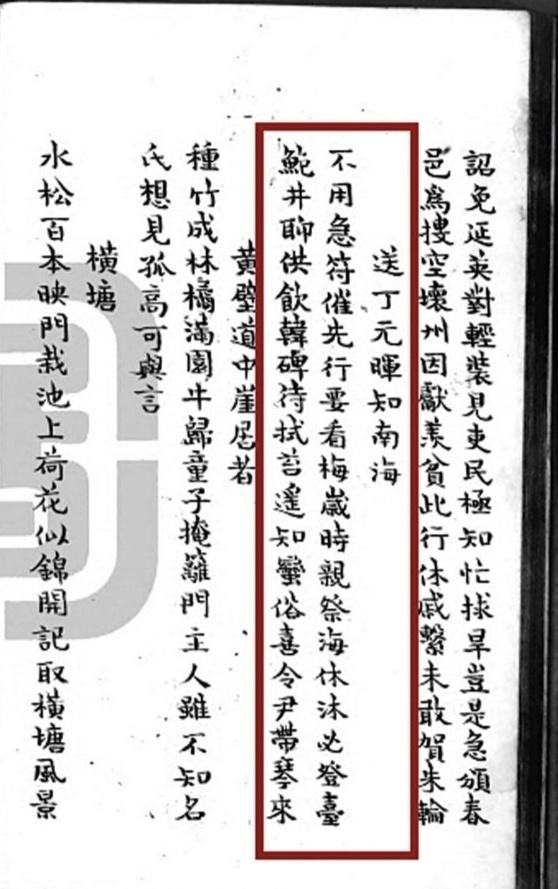 詔免延英對輕裝見吏民極知忙捄旱豈是急頒春
邑爲摟空壞州因獻羡貧此行休戚繫未敢賀朱輪
送丁元暉知南海
不用急符催先行要看梅歲時親祭海休沐必登臺
鮑井聊供飲韓碑待拭苔遙知蠻俗喜令尹帶琴來
黄壁道中崖居者
種竹成林橘滿園牛歸童子掩籬門主人雖不知名
氏想見孤高可與言
橫塘
水松百本映門栽池上荷花似錦開記取橫塘風景